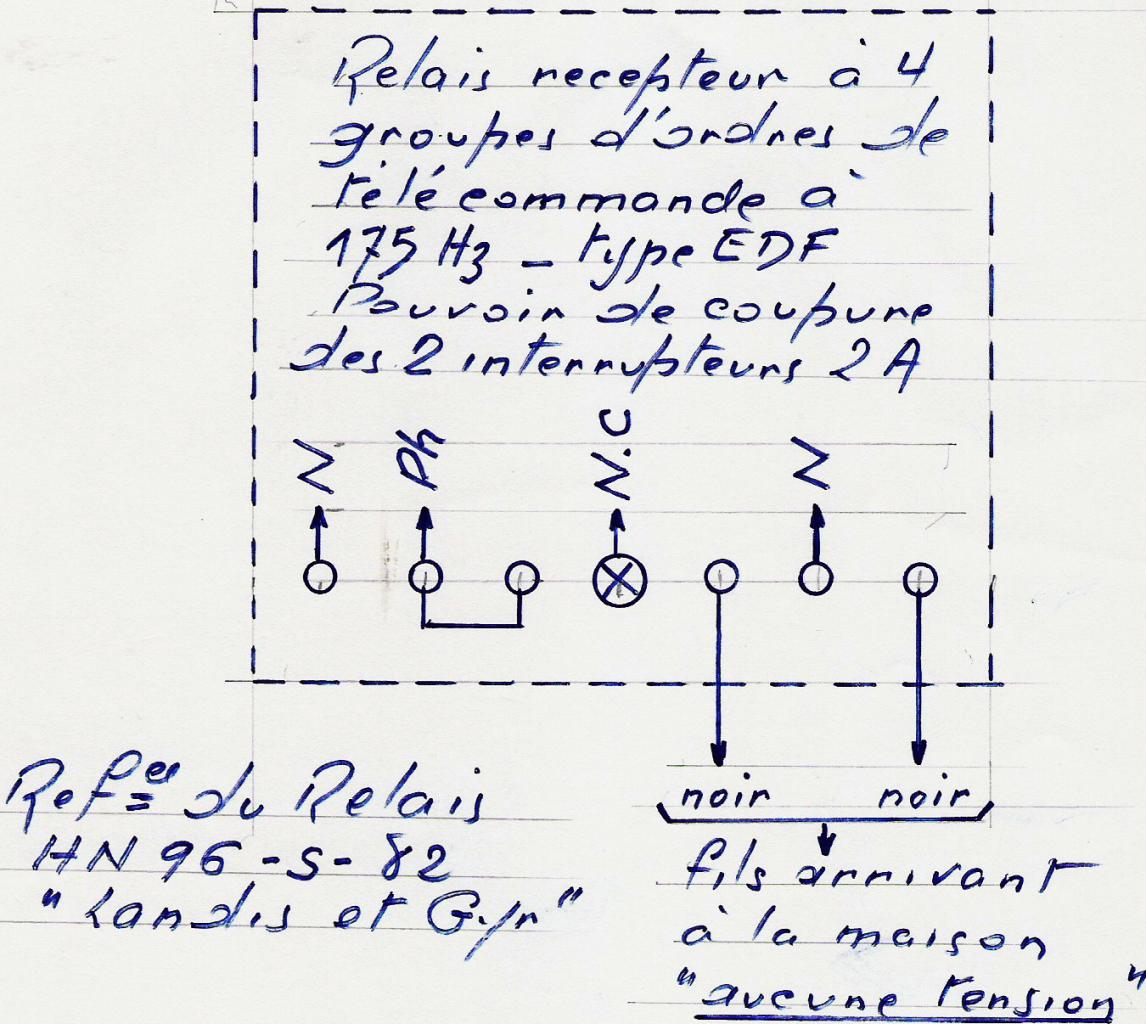 Relais recepteur à 4
groupes d'ordres de
télécommande à
175 Hz - type EDF
Pouvoir de coupure
des 2 interrupteurs 2 A
N
Ph
N.C
N
noir noir
Refces du Relais
HN 96 -S- 82
"Landis et Gyr"
fils arrivant
à la maison
"aucune tension"